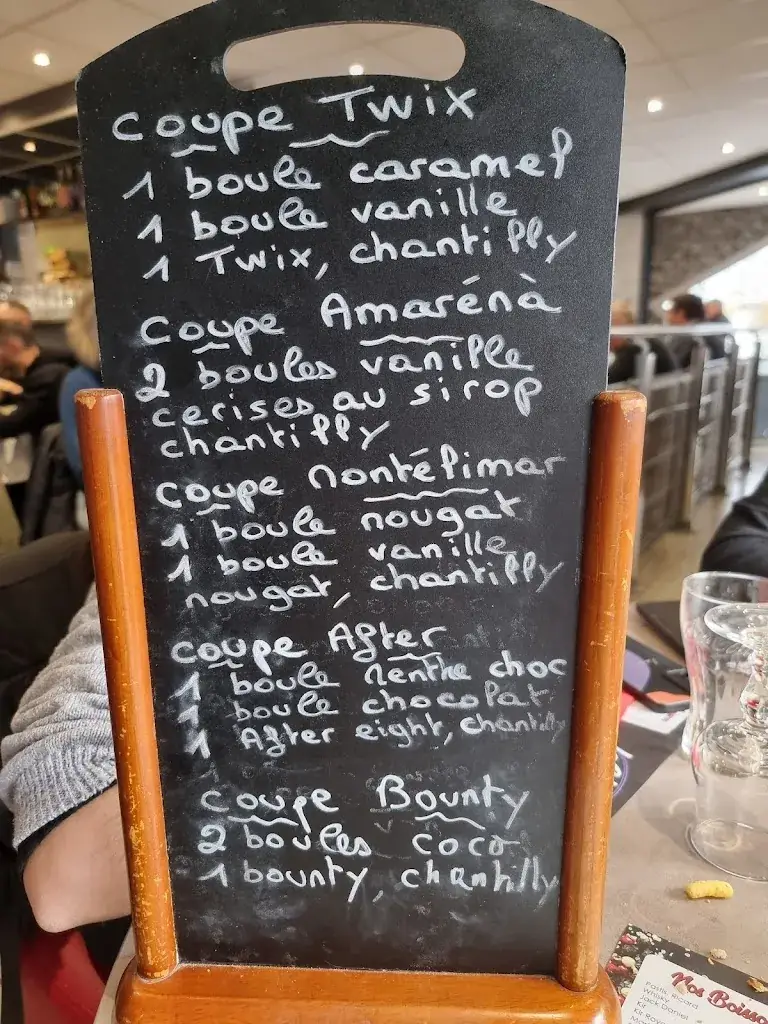 coupe Twix
1 boule caramel
1 boule vanille
1 Twix, chantilly
coupe Amarénà
2 boules vanille
cerises au sirop
chantilly
coupe Montélimar
1 boule nougat
1 boule vanille
nougat, chantilly
coupe After
1 boule Menthe choc
1 boule chocolat
1 After eight, chantilly
coupe Bounty
2 boules coco
1 bounty, chantilly
Nos Boisso
Pastis, Ricard
Whisky
Jack Daniel
Kir
Kir Roya